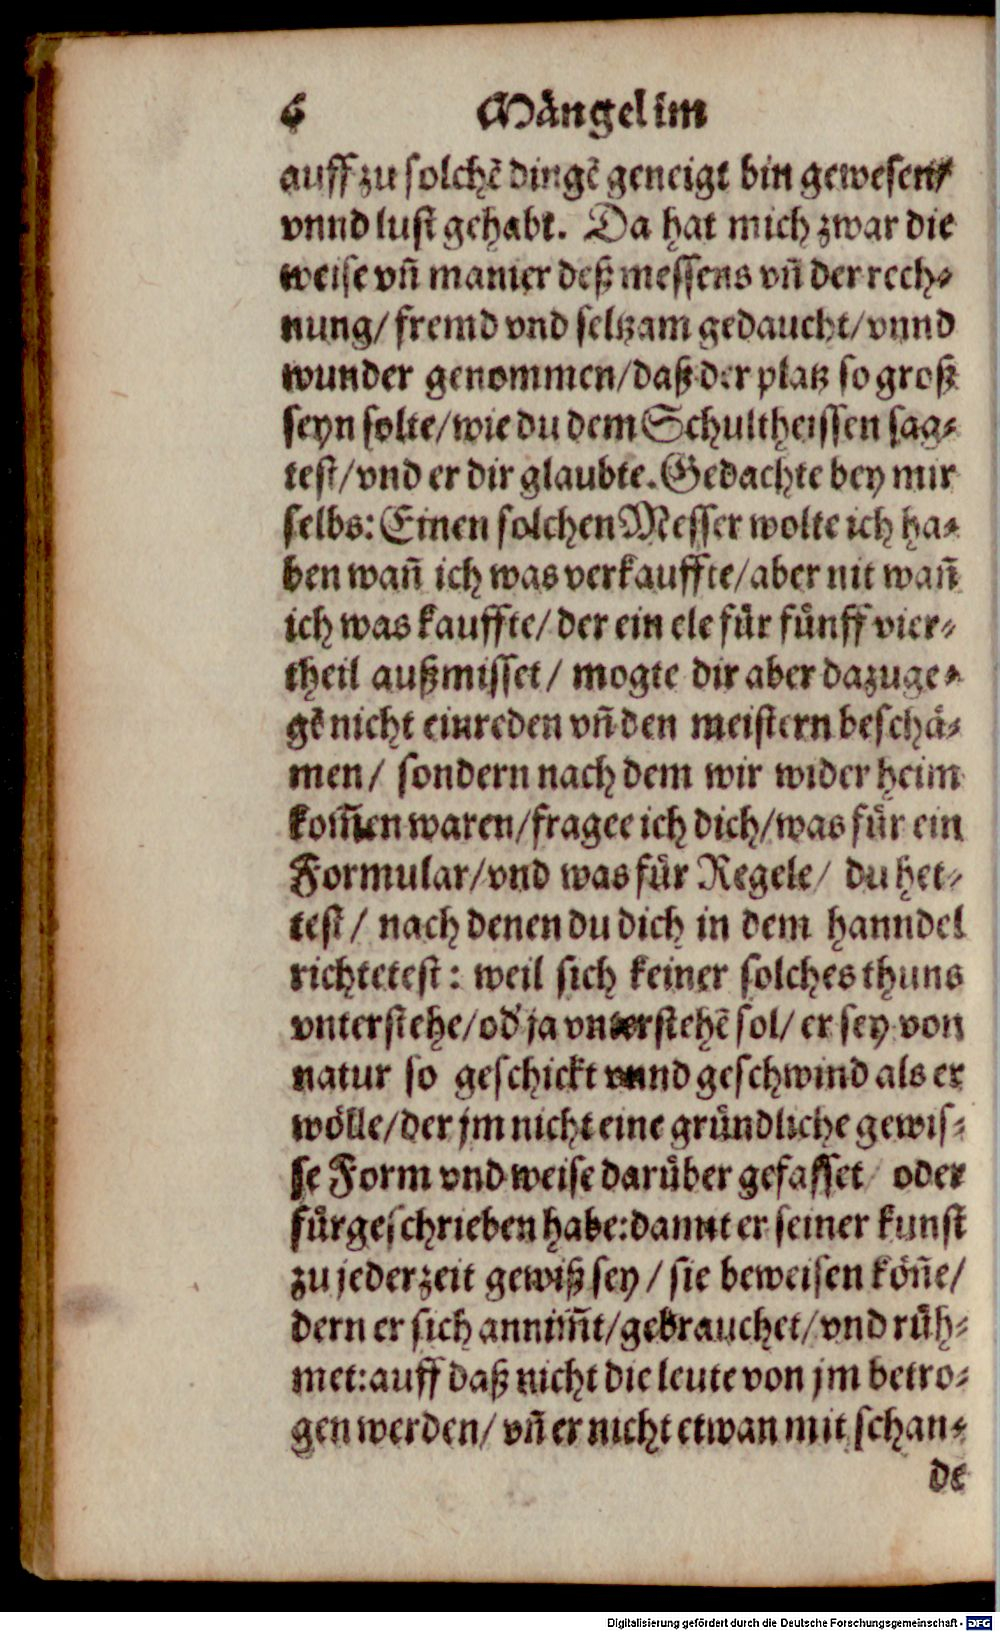 6 Mångel im
auff zu solchẽ dingẽ geneigt bin gewesen/
vnnd lust gehabt. Da hat mich zwar die
weise vñ manier deß messens vñ der rech⸗
nung/ fremd vnd seltzam gedaucht/ vnnd
wunder genommen/ daß der platz so groß
seyn solte/ wie du dem Schultheissen sag⸗
test/ vnd er dir glaubte. Gedachte bey mir
selbs: Einen solchen Messer wolte ich ha⸗
ben wañ ich was verkauffte/ aber nit wañ
ich was kauffte/ der ein ele fůr fůnff vier⸗
theil außmisset/ mogte dir aber dazuge⸗
gẽ nicht einreden vñ den meistern beschå⸗
men/ sondern nach dem wir wider heim
kom̃en waren/ fragee ich dich/ was fůr ein
Formular/ vnd was fůr Regele/ du het⸗
test/ nach denen du dich in dem hanndel
richtetest: weil sich keiner solches thuns
vnterstehe/ od' ja vnterstehẽ sol/ er sey von
natur so geschickt vnnd geschwind als er
wőlle/ der jm nicht eine gründliche gewis⸗
se Form vnd weise darůber gefasset/ oder
fůrgeschrieben habe: damit er seiner kunst
zu jederzeit gewiß sey/ sie beweisen kőñe/
dern er sich annim̃t/ gebrauchet/ vnd růh⸗
met: auff daß nicht die leute von jm betro⸗
gen werden/ vñ er nicht etwan mit schan⸗
de
Digitalisierung gefördert durch die Deutsche Forschungsgemeinschaft - DFG